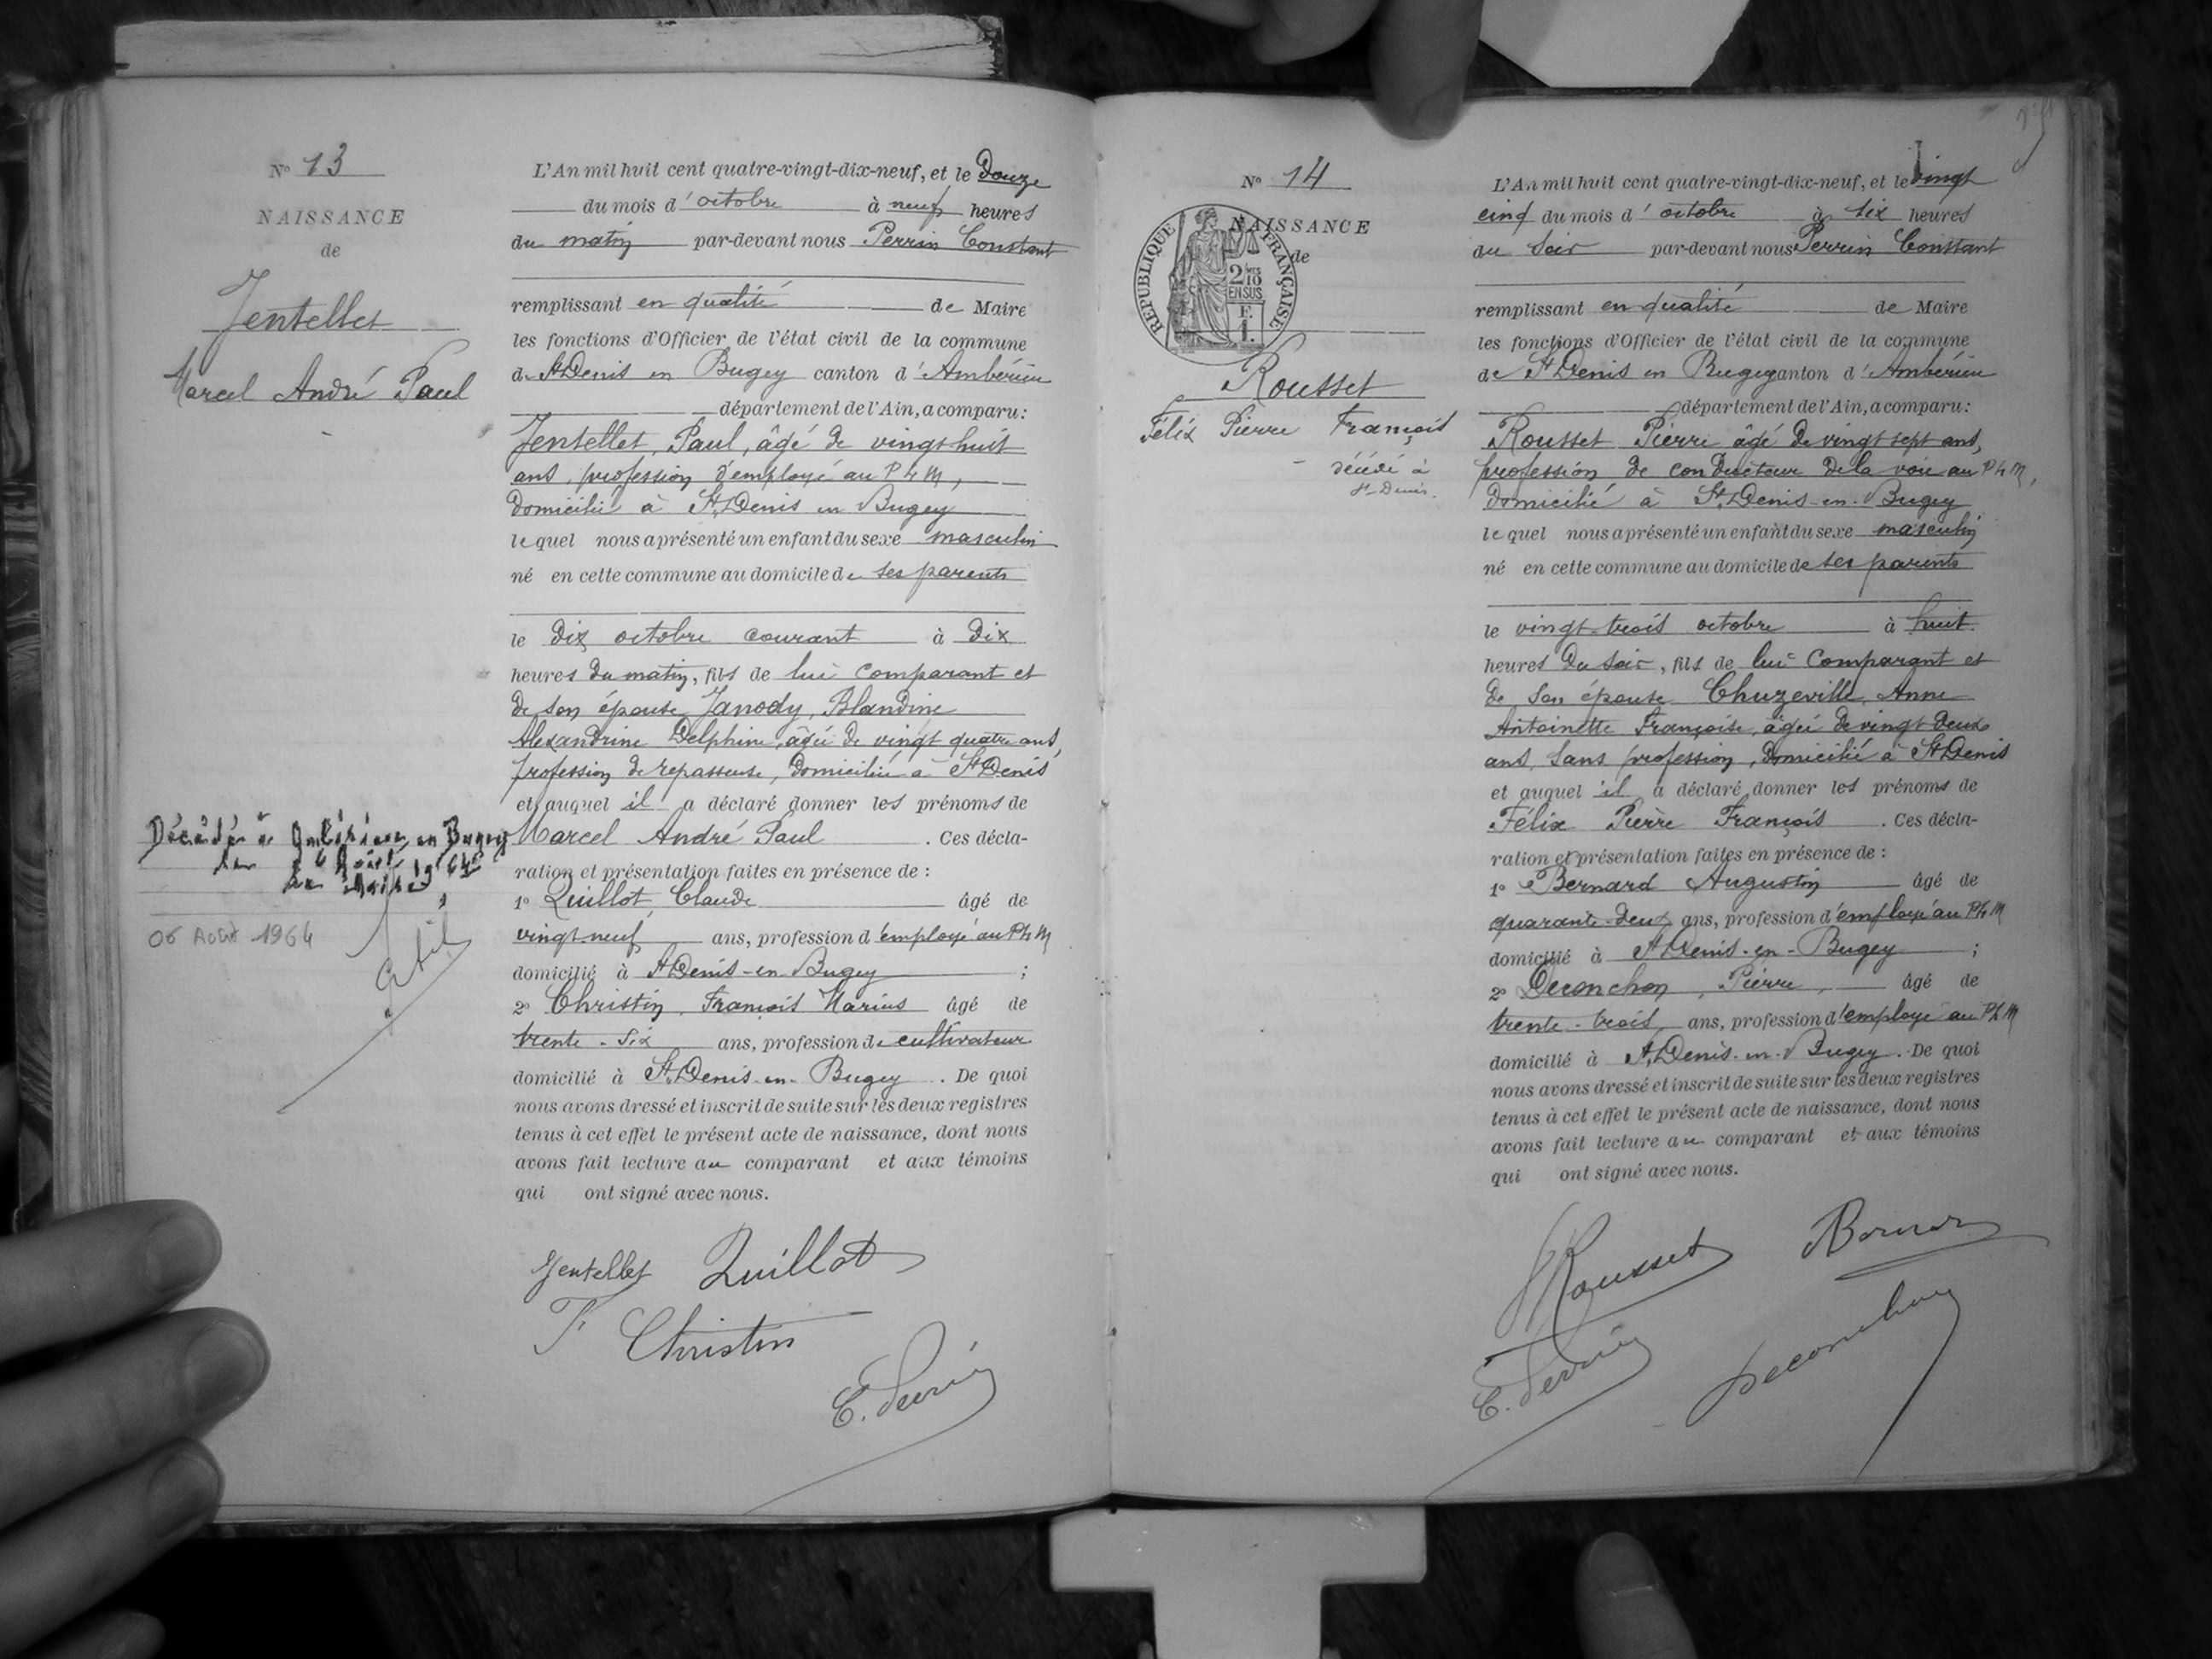 N° 13
NAISSANCE
de
Jentellet
Marcel André Paul
Décédé à Ambérieu en Bugey
le
06 Août 1964
L'An mil huit cent quatre-vingt-dix-neuf, et le Douze
du mois d'octobre à neuf heures
du matin par-devant nous Perrin Constant
remplissant en qualité de Maire
les fonctions d'Officier de l'état civil de la commune
de St Denis en Bugey canton d'Ambérieu
département de l'Ain, a comparu:
Jentellet, Paul, âgé de vingt-huit
ans, profession d'employé au P L M,
Domicilié à St Denis en Bugey
lequel nous a présenté un enfant du sexe masculin
né en cette commune au domicile de ses parents
le Dix octobre courant à Dix
heures du matin, fils de lui comparant et
de son épouse Janody, Blandine
Alexandrine Delphine, âgée de vingt quatre ans,
profession de repasseuse, domiciliée à St Denis
et auquel il a déclaré donner les prénoms de
Marcel André Paul . Ces décla-
ration et présentation faites en présence de :
1° Quillot, Claude âgé de
vingt neuf ans, profession d'employé au P L M
domicilié à St Denis-en-Bugey ;
2° Christin, François Marius âgé de
trente-six ans, profession de cultivateur
domicilié à St Denis-en-Bugey . De quoi
nous avons dressé et inscrit de suite sur les deux registres
tenus à cet effet le présent acte de naissance, dont nous
avons fait lecture au comparant et aux témoins
qui ont signé avec nous.
Jentellet Quillot
F Christin
C. Perrin
N° 14
NAISSANCE
de
RÉPUBLIQUE FRANÇAISE
2/10
EN SUS
F.
1.
Rousset
Félix Pierre François
décédé à
St-Denis.
L'An mil huit cent quatre-vingt-dix-neuf, et le vingt
cinq du mois d'octobre à six heures
du soir par-devant nous Perrin Constant
remplissant en qualité de Maire
les fonctions d'Officier de l'état civil de la commune
de St Denis en Bugey canton d'Ambérieu
département de l'Ain, a comparu:
Rousset Pierre âgé de vingt sept ans,
profession de conducteur de la voie au P L M,
Domicilié à St Denis-en-Bugey
lequel nous a présenté un enfant du sexe masculin
né en cette commune au domicile de ses parents
le vingt-trois octobre à huit
heures du soir, fils de lui comparant et
de son épouse Chuzeville Anne
Antoinette Françoise, âgée de vingt-deux
ans, sans profession, domicilié à St Denis
et auquel il a déclaré donner les prénoms de
Félix Pierre François . Ces décla-
ration et présentation faites en présence de :
1° Bernard Augustin âgé de
quarante-deux ans, profession d'employé au P L M
domicilié à St Denis-en-Bugey ;
2° Deconchon, Pierre, âgé de
trente-trois ans, profession d'employé au P L M
domicilié à St Denis-en-Bugey. De quoi
nous avons dressé et inscrit de suite sur les deux registres
tenus à cet effet le présent acte de naissance, dont nous
avons fait lecture au comparant et aux témoins
qui ont signé avec nous.
Rousset Bernard
C. Perrin Deconchon